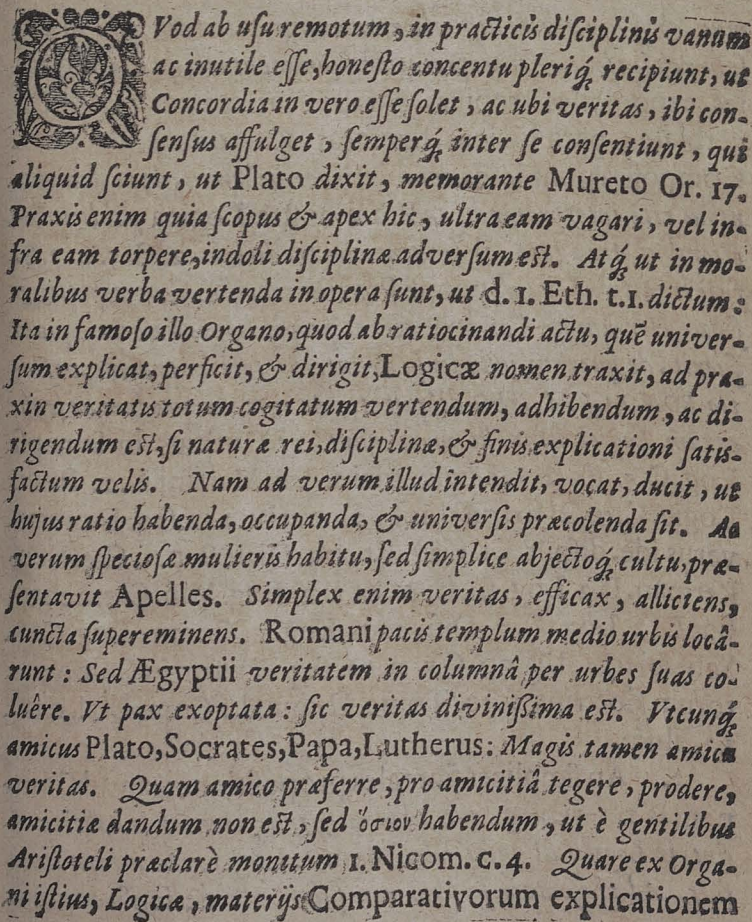 QVod ab uſu remotum, in practicis diſciplinis vanum
ac inutile eſſe, honeſto concentu pleriq́; recipiunt, ut
Concordia in vero eſſe ſolet, ac ubi veritas, ibi con-
ſenſus affulget, ſemperq́; inter ſe conſentiunt, qui
aliquid ſciunt, ut Plato dixit, memorante Mureto Or. 17.
Praxis enim quia ſcopus & apex hic, ultra eam vagari, vel in-
fra eam torpere, indoli diſciplinæ adverſum eſt. Atq́; ut in mo-
ralibus verba vertenda in opera ſunt, ut d. 1. Eth. t. 1. dictum:
Ita in famoſo illo Organo, quod ab ratiocinandi actu, quẽ univer-
ſum explicat, perficit, & dirigit, Logicæ nomen traxit, ad pra-
xin veritatis totum cogitatum vertendum, adhibendum, ac di-
rigendum eſt, ſi naturæ rei, diſciplinæ, & finis explicationi ſatis-
factum velis. Nam ad verum illud intendit, vocat, ducit, ut
hujus ratio habenda, occupanda, & univerſis præcolenda ſit. Ac
verum ſpecioſæ mulieris habitu, ſed ſimplice abjectoq́; cultu, præ-
ſentavit Apelles. Simplex enim veritas, efficax, alliciens,
cuncta ſupereminens. Romani pacis templum medio urbis locâ-
runt: Sed Ægyptii veritatem in columnâ per urbes ſuas co-
luêre. Vt pax exoptata: ſic veritas diviniſſima eſt. Vtcunq́;
amicus Plato, Socrates, Papa, Lutherus: Magis tamen amica
veritas. Quam amico præferre, pro amicitiâ tegere, prodere,
amicitiæ dandum non eſt, ſed ὅσιον habendum, ut è gentilibus
Ariſtoteli præclarè monitum 1. Nicom. c. 4. Quare ex Orga-
ni iſtius, Logicæ, materijs Comparativorum explicationem